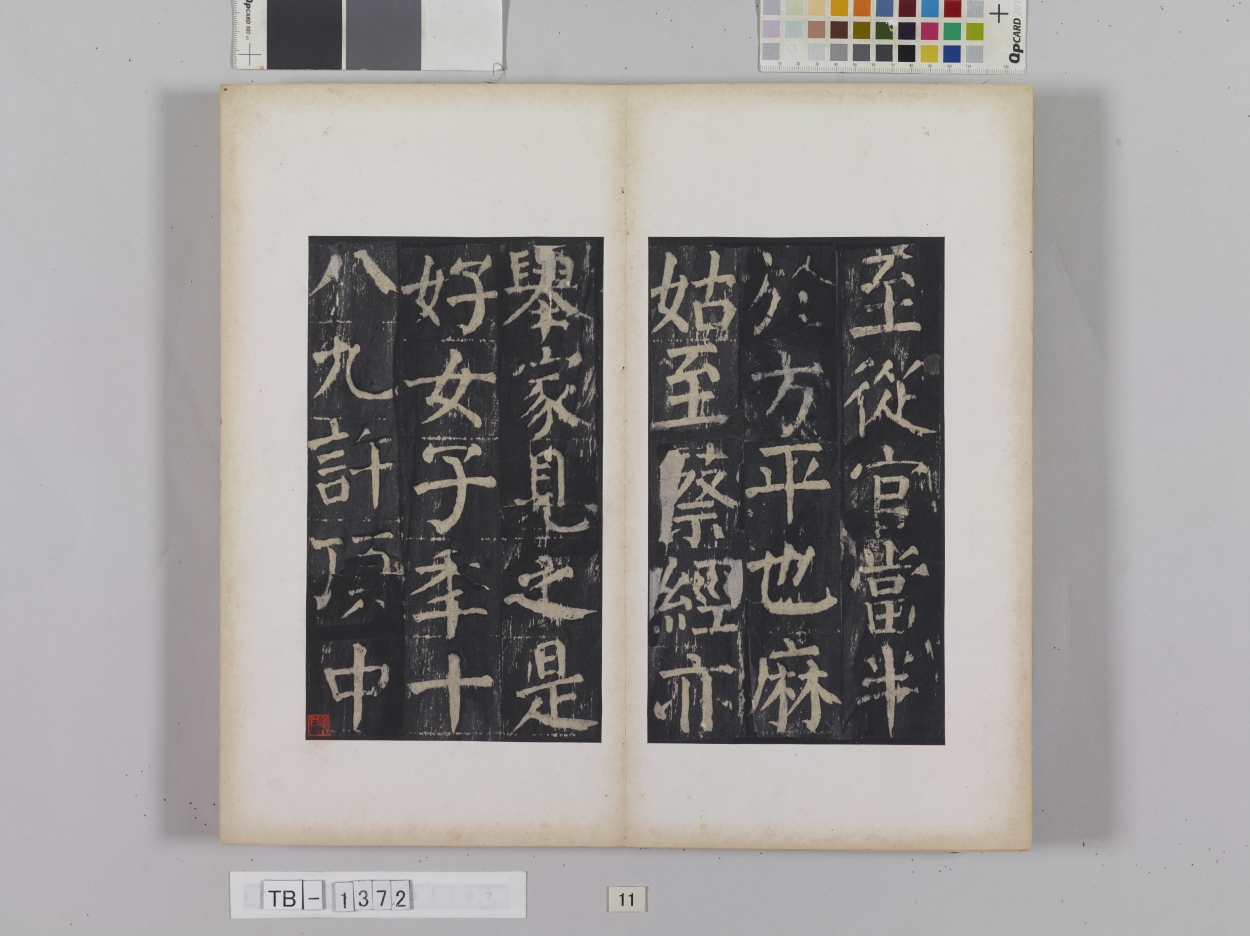 至從官當半
於方平也麻
姑至蔡經亦
舉家見之是
好女子年十
八九許頂中
TB-1372
11
QPCARD